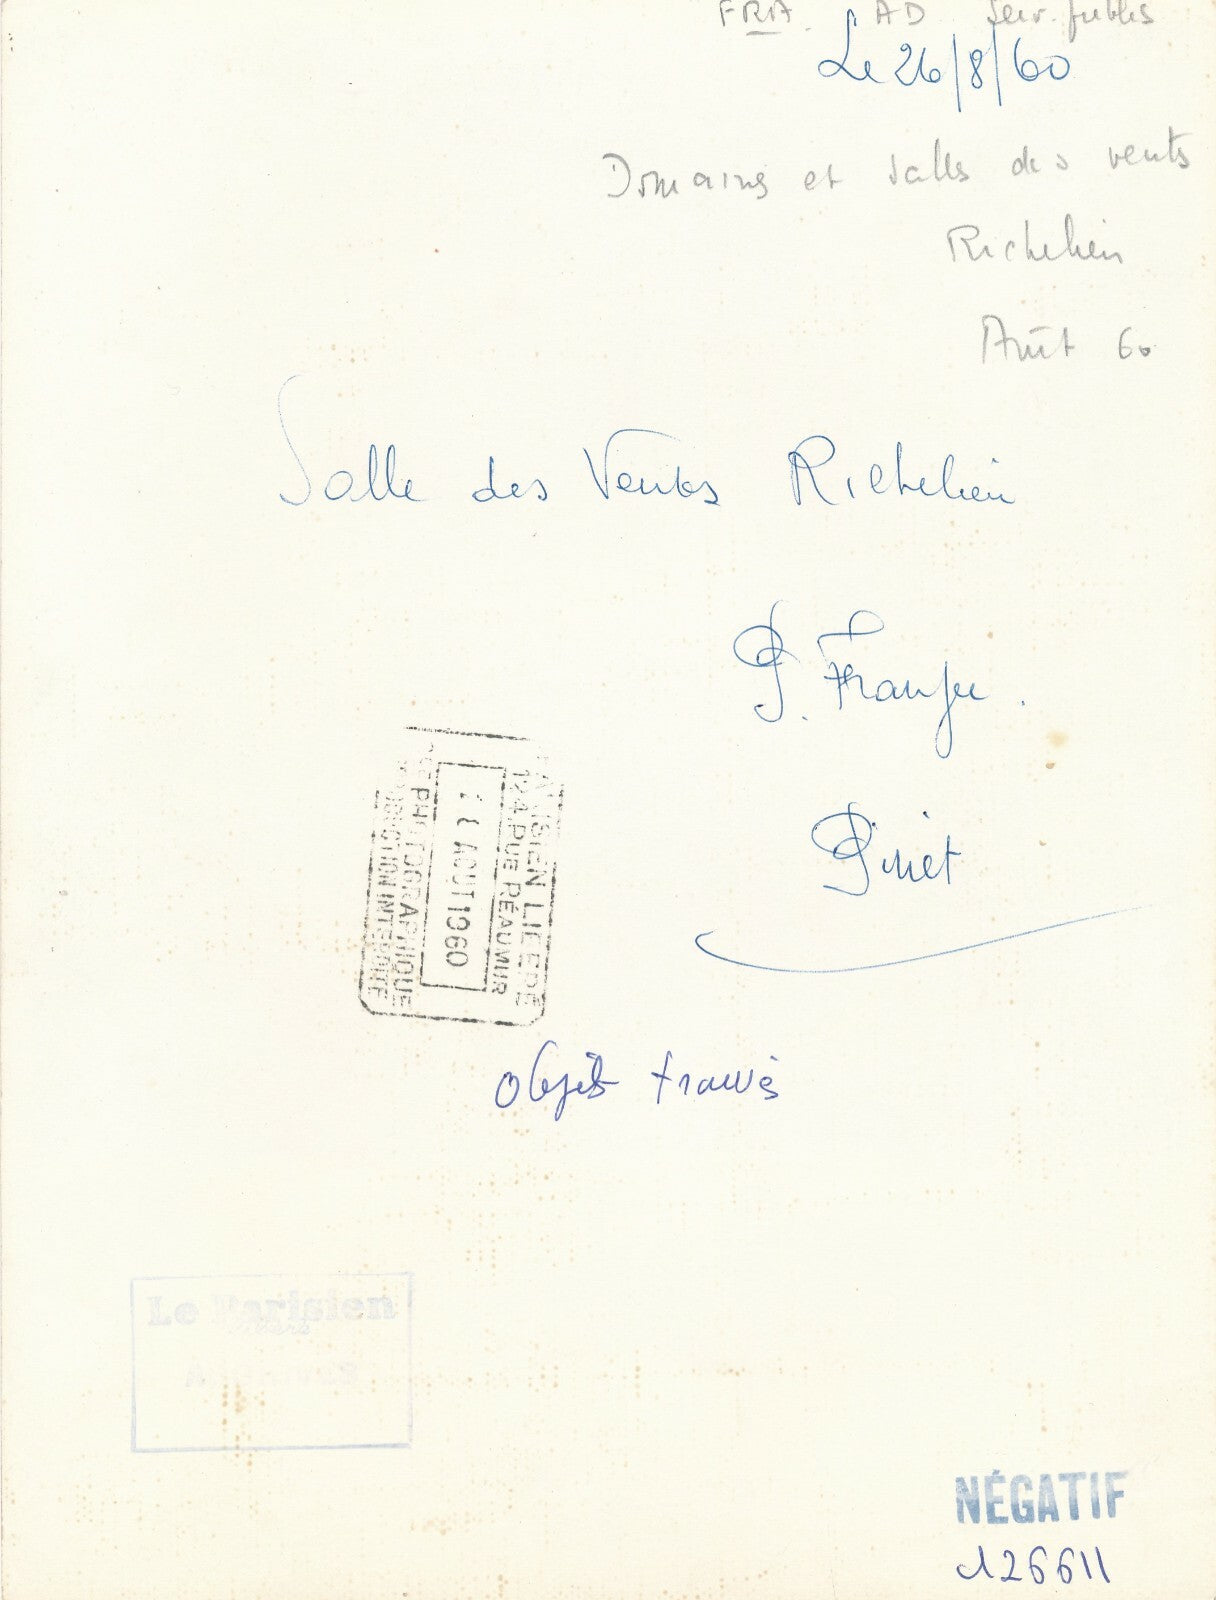 FRA. AD Serv. publics
Le 26/8/60
Domaines et salles des vents
Richelieu
Août 60
Salle des Ventes Richelieu
P. Franju.
Pinet
PARISIEN LIBÉRÉ
124, RUE RÉAUMUR
AOUT 1960
PHOTOGRAPHIQUE
INTERDITE
objets trouvés
Le Parisien
NÉGATIF
126611